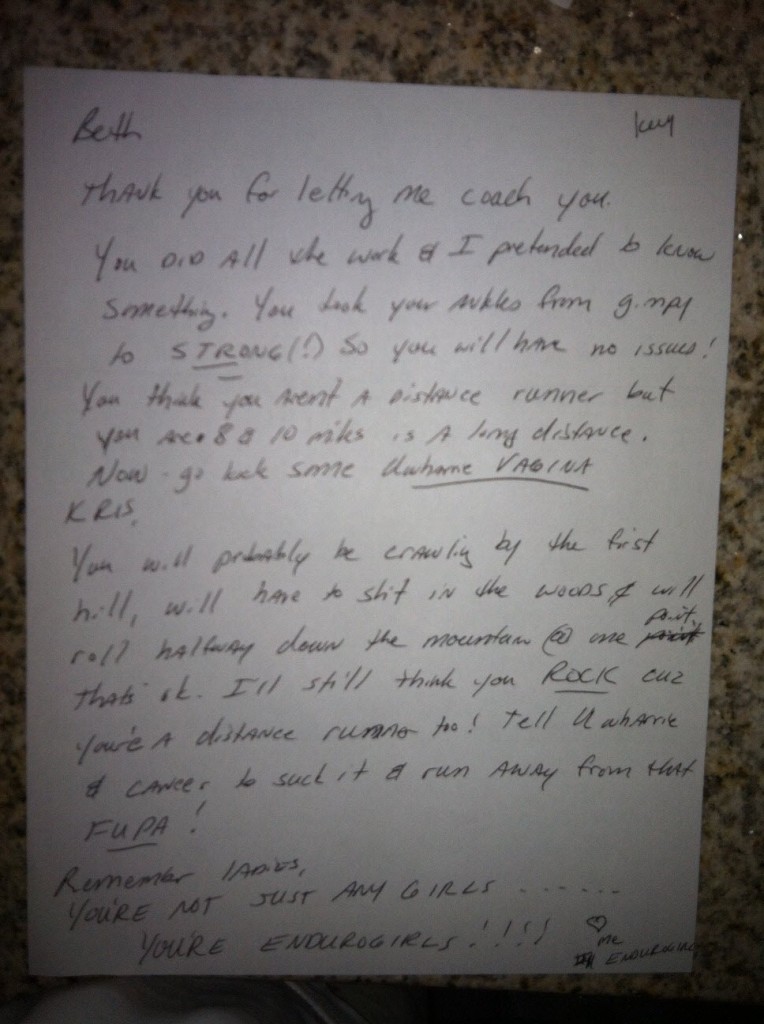 Beth
Thank you for letting me coach you.
You DID All the work & I pretended to know
something. You took your ankles from gimpy
to STRONG(!) So you will have no issues!
You think you aren't A Distance runner but
you are. 8 & 10 miles is A long distance.
Now go kick some Uwharrie VAGINA
KRIS,
You will probably be crawling by the first
hill, will have to shit in the woods & will
roll halfway down the mountain @ one point
thats ok. I'll still think you ROCK cuz
You're A distance runner too! Tell Uwharrie
& cancer to suck it & run AWAY from that
FUPA!
Remember ladies,
YOU'RE NOT JUST ANY GIRLS ......
YOU'RE ENDUROGIRLS!!!!
♡
me
ENDUROGIRL